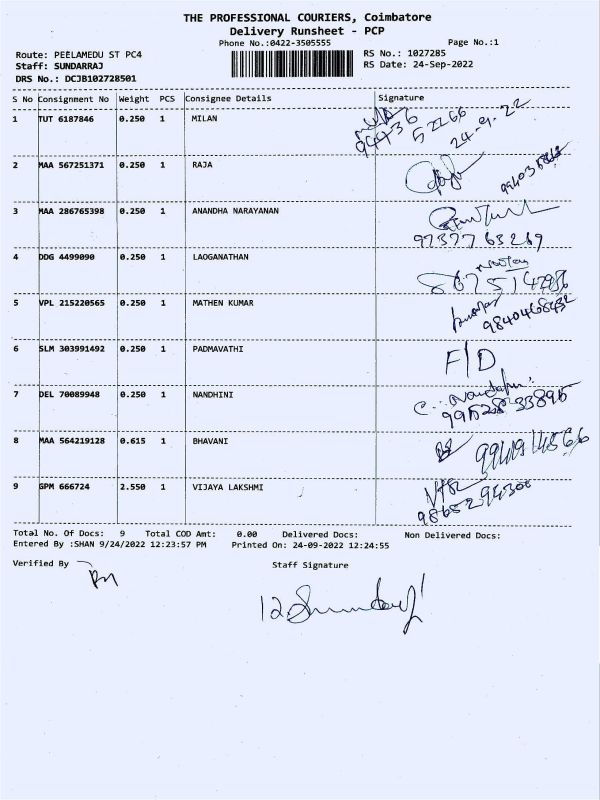 THE PROFESSIONAL COURIERS, Coimbatore
Delivery Runsheet - PCP
Phone No.:0422-3505555 Page No.:1
Route: PEELAMEDU ST PC4 RS No.: 1027285
Staff: SUNDARRAJ RS Date: 24-Sep-2022
DRS No.: DCJB102728501
S No Consignment No Weight PCS Consignee Details Signature
1 TUT 6187846 0.250 1 MILAN 94436 52266 24-9-22
2 MAA 567251371 0.250 1 RAJA
3 MAA 286765398 0.250 1 ANANDHA NARAYANAN
97377 63269
4 DDG 4499090 0.250 1 LAOGANATHAN
5 VPL 215220565 0.250 1 MATHEN KUMAR
6 SLM 303991492 0.250 1 PADMAVATHI F/D
7 DEL 70089948 0.250 1 NANDHINI
99528 33895
8 MAA 564219128 0.615 1 BHAVANI
9 GPM 666724 2.550 1 VIJAYA LAKSHMI
98652 94308
Total No. Of Docs: 9 Total COD Amt: 0.00 Delivered Docs: Non Delivered Docs:
Entered By :SHAN 9/24/2022 12:23:57 PM Printed On: 24-09-2022 12:24:55
Verified By Staff Signature